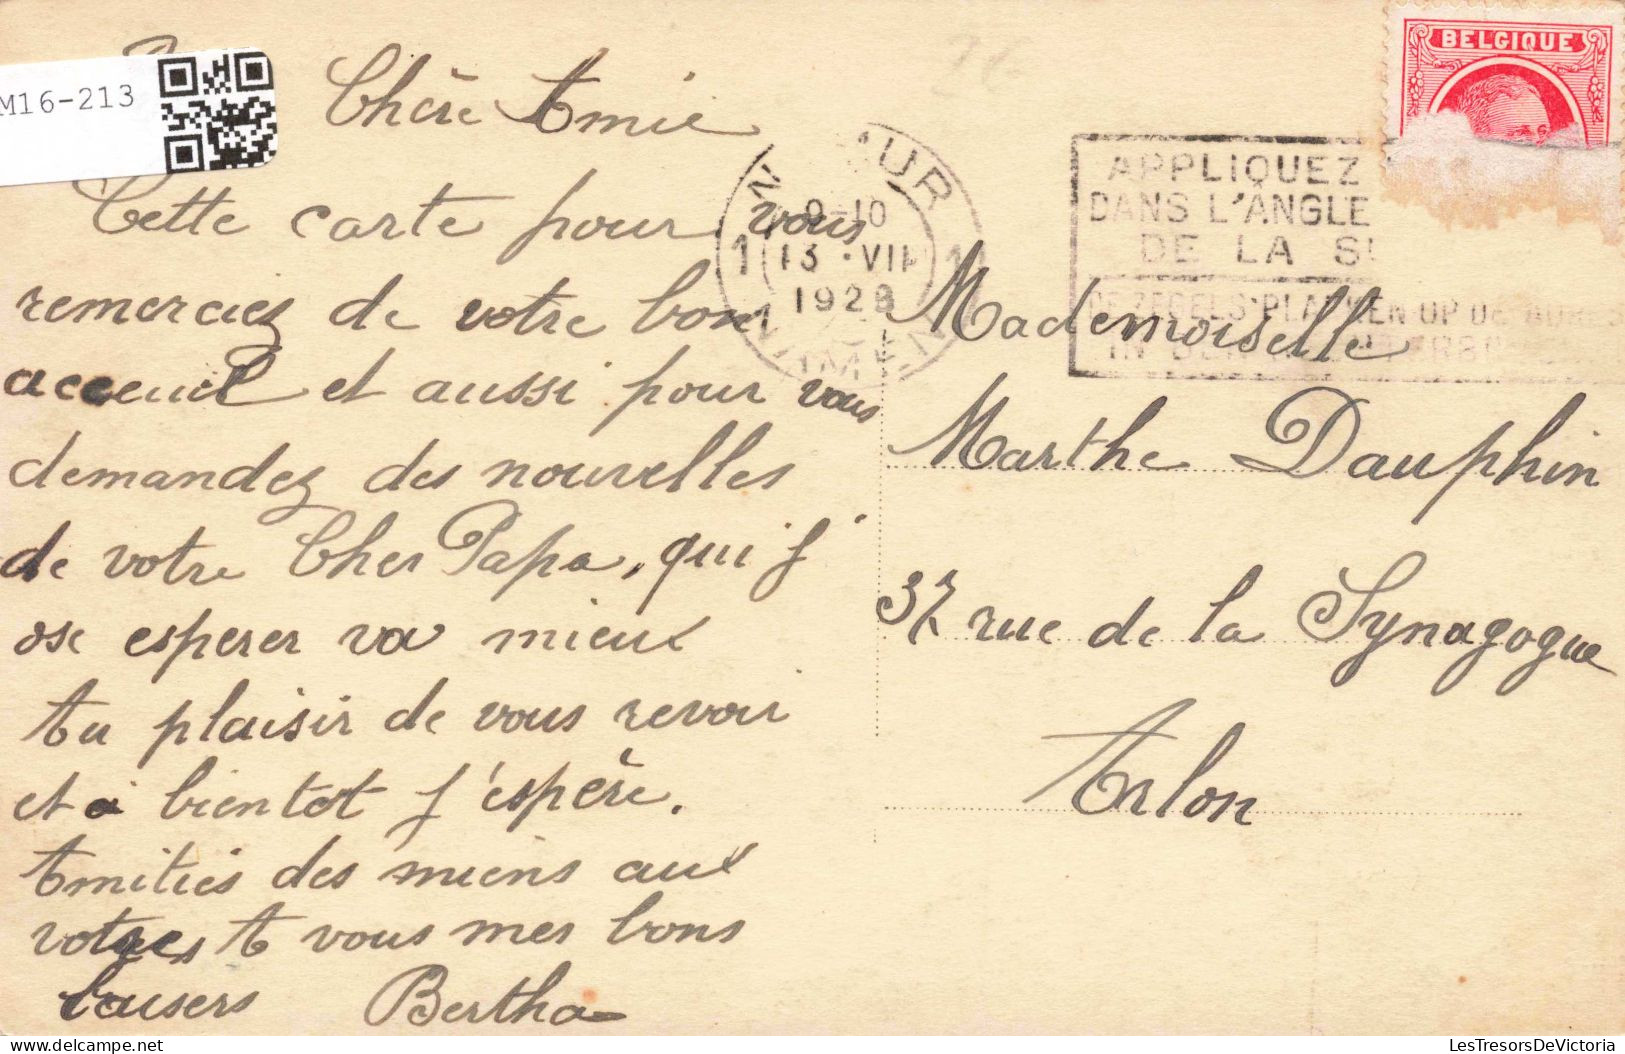 M16-213
Chère Amie
Cette carte pour vous
remerciez de votre bon
acceuil et aussi pour vous
demandez des nouvelles
de votre Cher Papa, qui j'
ose esperer va mieux
Au plaisir de vous revoir
et a bientot j'espère.
Amitiés des miens aux
votres A vous mes bons
baisers Bertha
BELGIQUE
9-10
13 · VII
1928
1 1
APPLIQUEZ
DANS L'ANGLE
DE LA
Mademoiselle
Marthe Dauphin
37 rue de la Synagogue
Arlon
delcampe.net
LesTresorsDeVictoria